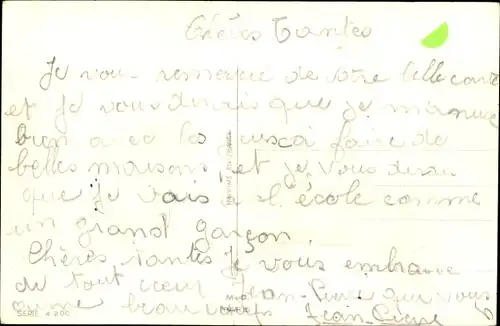 Chères Tantes
Je vous remercie de votre belle carte
et Je vous dirais que je m'amuse
bien avec les jusca faire de
belles maisons, et je vous dirai
que Je vais a l'école comme
un grand garçon.
Chères tantes Je vous embrasse
de tout cœur Jean-Pierre qui vous
aime beaucoup Jean-Pierre
SERIE 4200